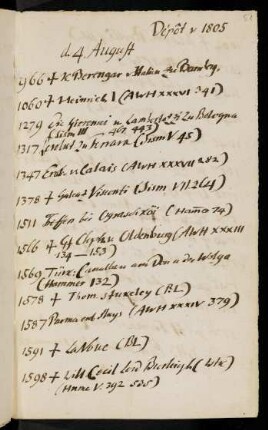 Dépôt v 1805
d. 4 August
966 + K Berengar v Italien zu Bamberg.
1060 + Heinrich I (AWH XXXVI 341)
1279 die u. Lambertazzi zu Bologna
(Sism III 442 443)
1317 in Ferrara (Sism V 45)
1347 Erob. v Calais (AWH XXXVII 282)
1378 + Galeaz Visconti (Sism VII 264)
1511 Treffen bei (Hamo 74)
1566 + Gf Chph v Oldenburg (AWH XXXIII
134 - 153)
1569 Türk: Canalbau am Don u der Wolga
(Hammer 132)
1578 + Thom. Stukeley (BL)
1587 Parma Sluys (AWH XXXIV 379)
1591 + La Noue (BL)
1598 + Will Cecil Lord Burleigh (Wtr)
(Hume V. 292 525)